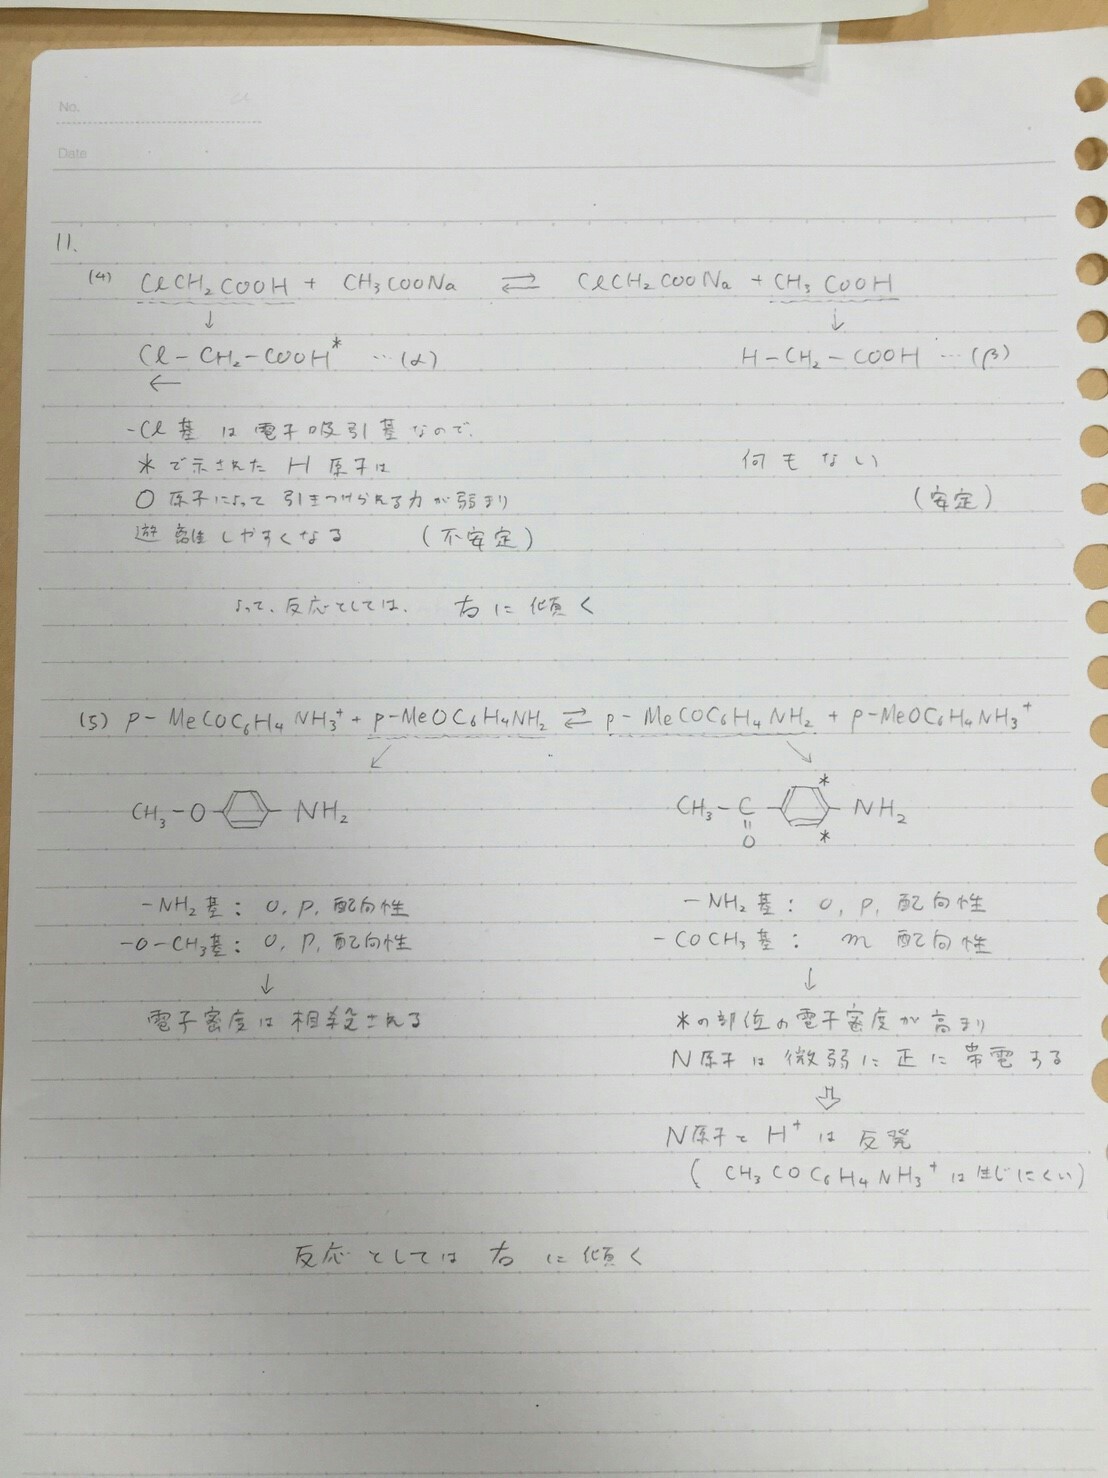 No.
Date
11.
(4) ClCH₂COOH + CH₃COONa ⇄ ClCH₂COONa + CH₃COOH
↓ ↓
Cl-CH₂-COOH* …(α) H-CH₂-COOH …(β)
←
-Cl基は電子吸引基なので、
*で示されたH原子は 何もない
O原子によって引きつけられる力が弱まり (安定)
遊離しやすくなる (不安定)
よって、反応としては、右に傾く
(5) p-MeCOC₆H₄NH₃⁺ + p-MeOC₆H₄NH₂ ⇄ p-MeCOC₆H₄NH₂ + p-MeOC₆H₄NH₃⁺
CH₃-O- -NH₂ CH₃-C- * * -NH₂
O
-NH₂基: o, p, 配向性 -NH₂基: o, p, 配向性
-O-CH₃基: o, p, 配向性 -COCH₃基: m 配向性
↓ ↓
電子密度は相殺される *の部位の電子密度が高まり
N原子は微弱に正に帯電する
⇩
N原子とH⁺は反発
(CH₃COC₆H₄NH₃⁺は生じにくい)
反応としては右に傾く